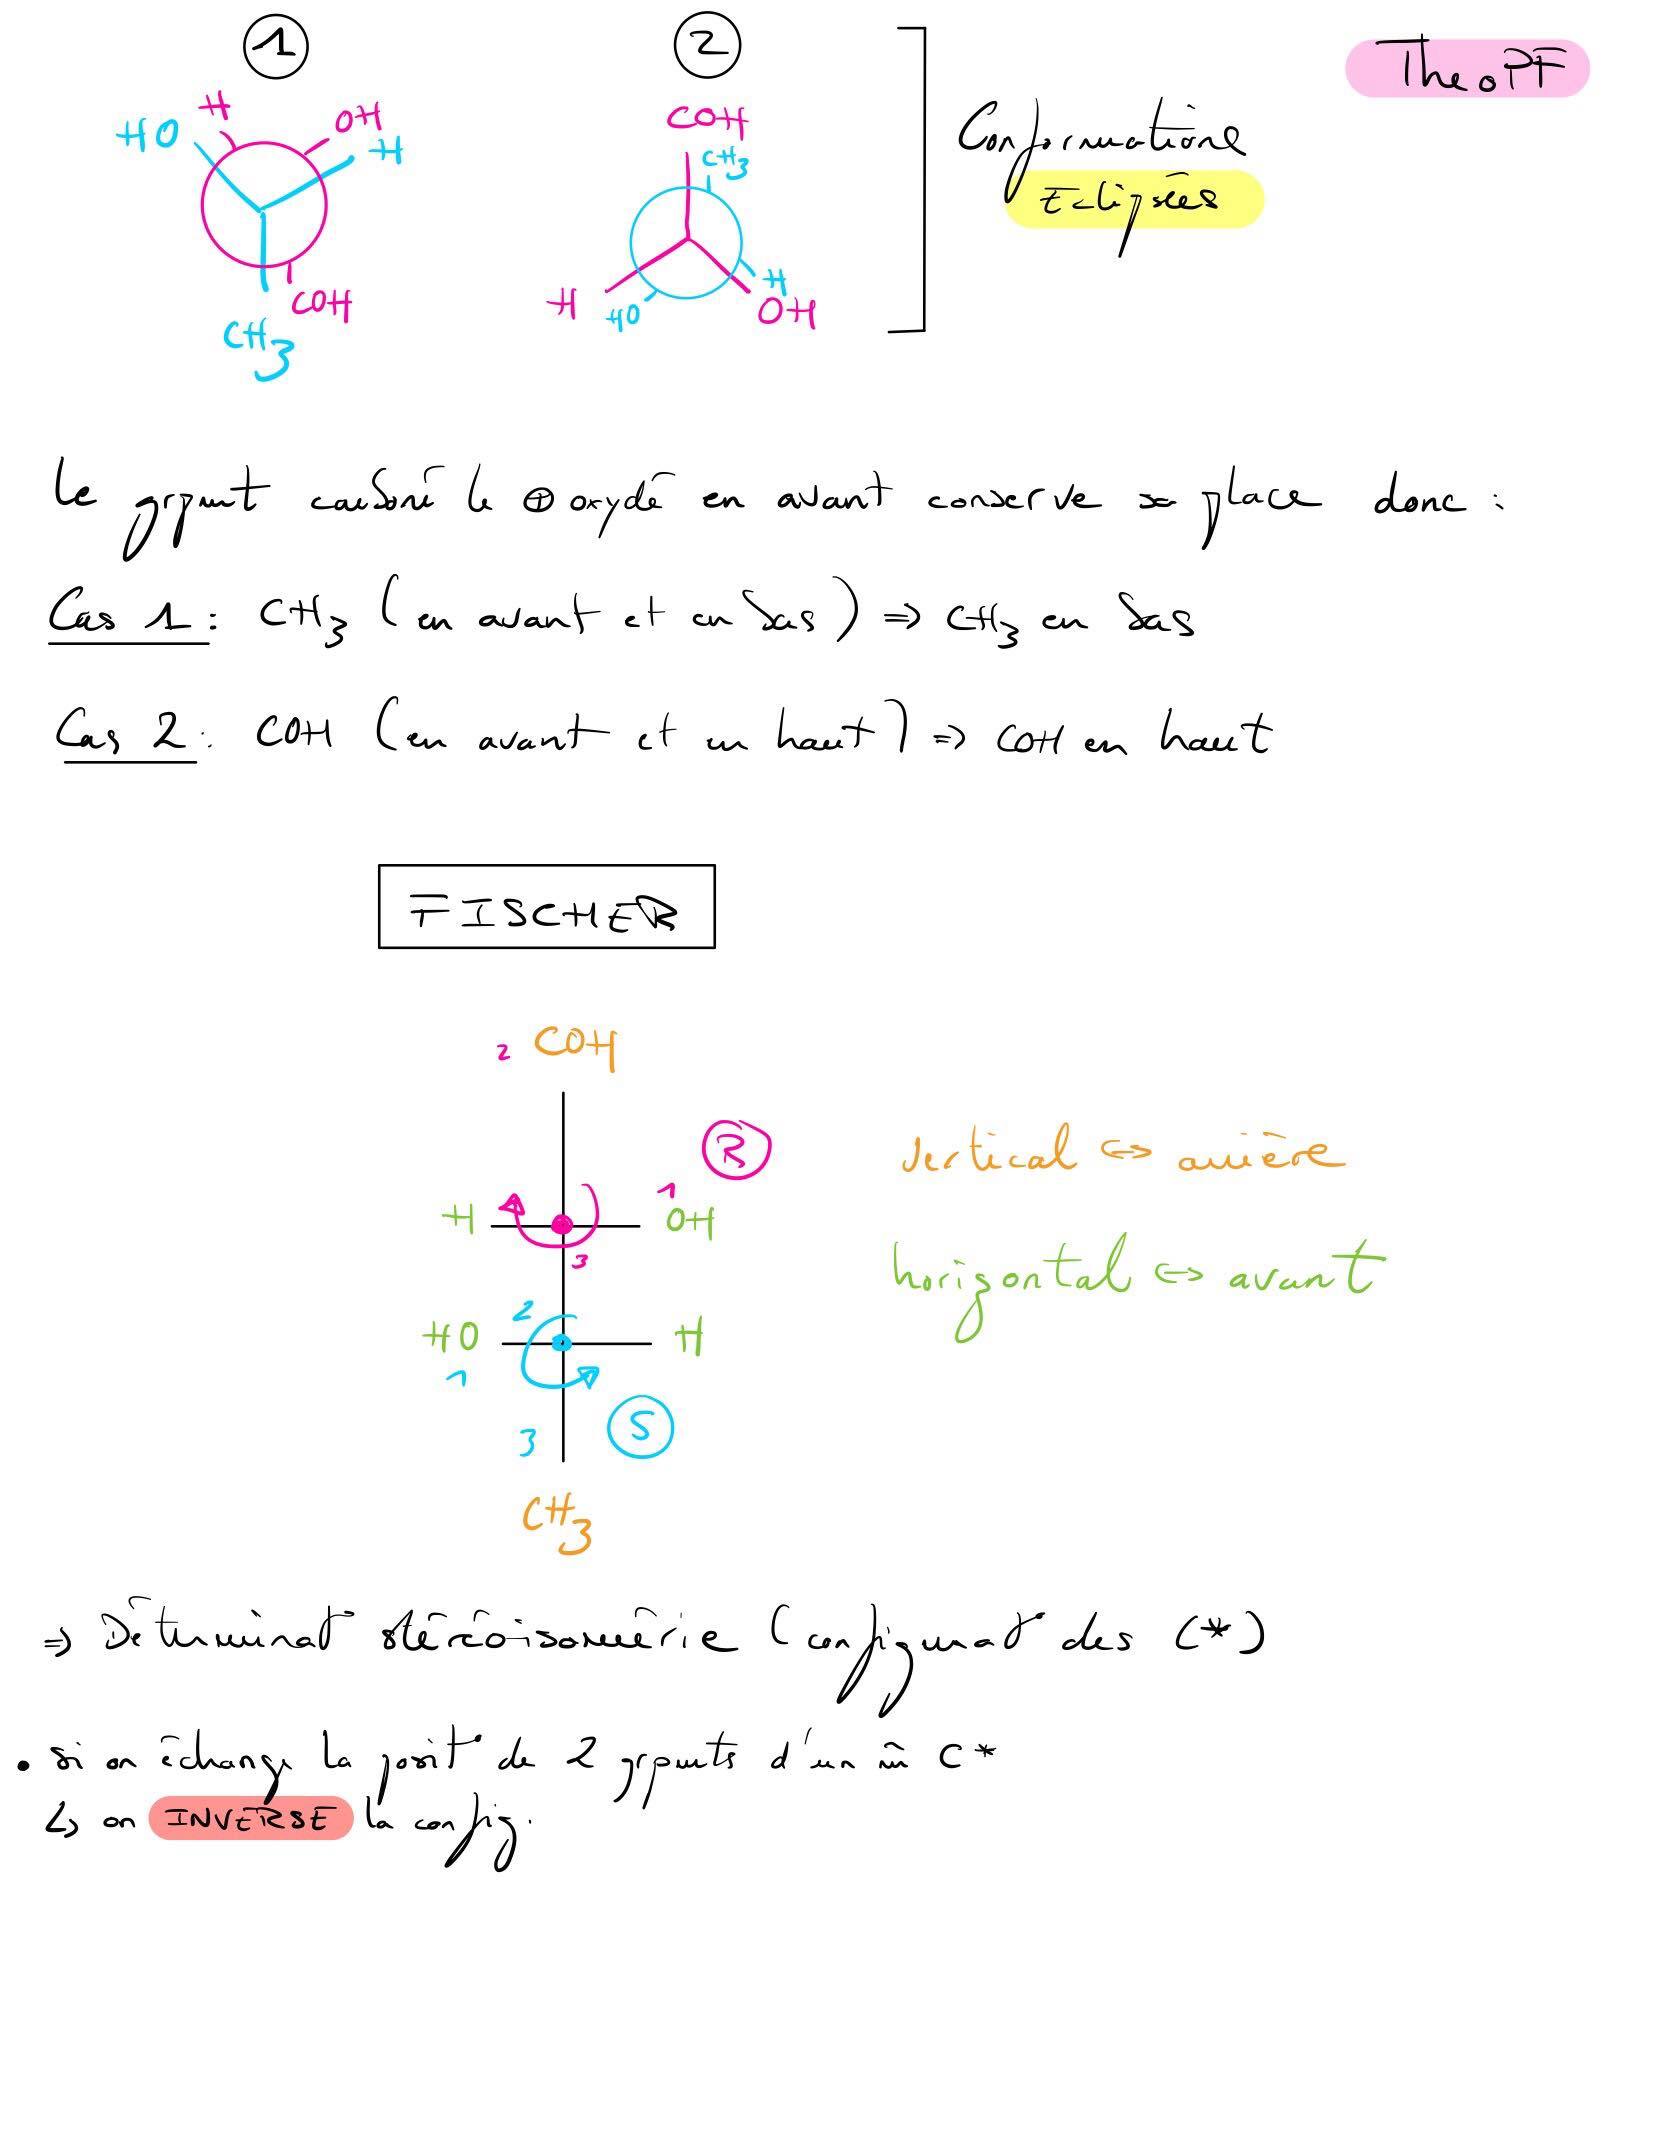 1
2
TheoPF
H
OH
HO
H
COH
CH3
COH
CH3
H
H
HO
OH
Conformations
Eclipsées
Le grpmt carboné le ⊕ oxydé en avant conserve sa place donc :
Cas 1 : CH3 (en avant et en bas) ⇒ CH3 en bas
Cas 2 : COH (en avant et en haut) ⇒ COH en haut
FISCHER
2 COH
R
vertical ⇔ arrière
1
H
OH
3
horizontal ⇔ avant
2
HO
H
1
3
S
CH3
⇒ Déterminat° stéréoisomérie (configurat° des C*)
• si on échange la posit° de 2 grpmts d'un m̂ C*
↳ on INVERSE la config.